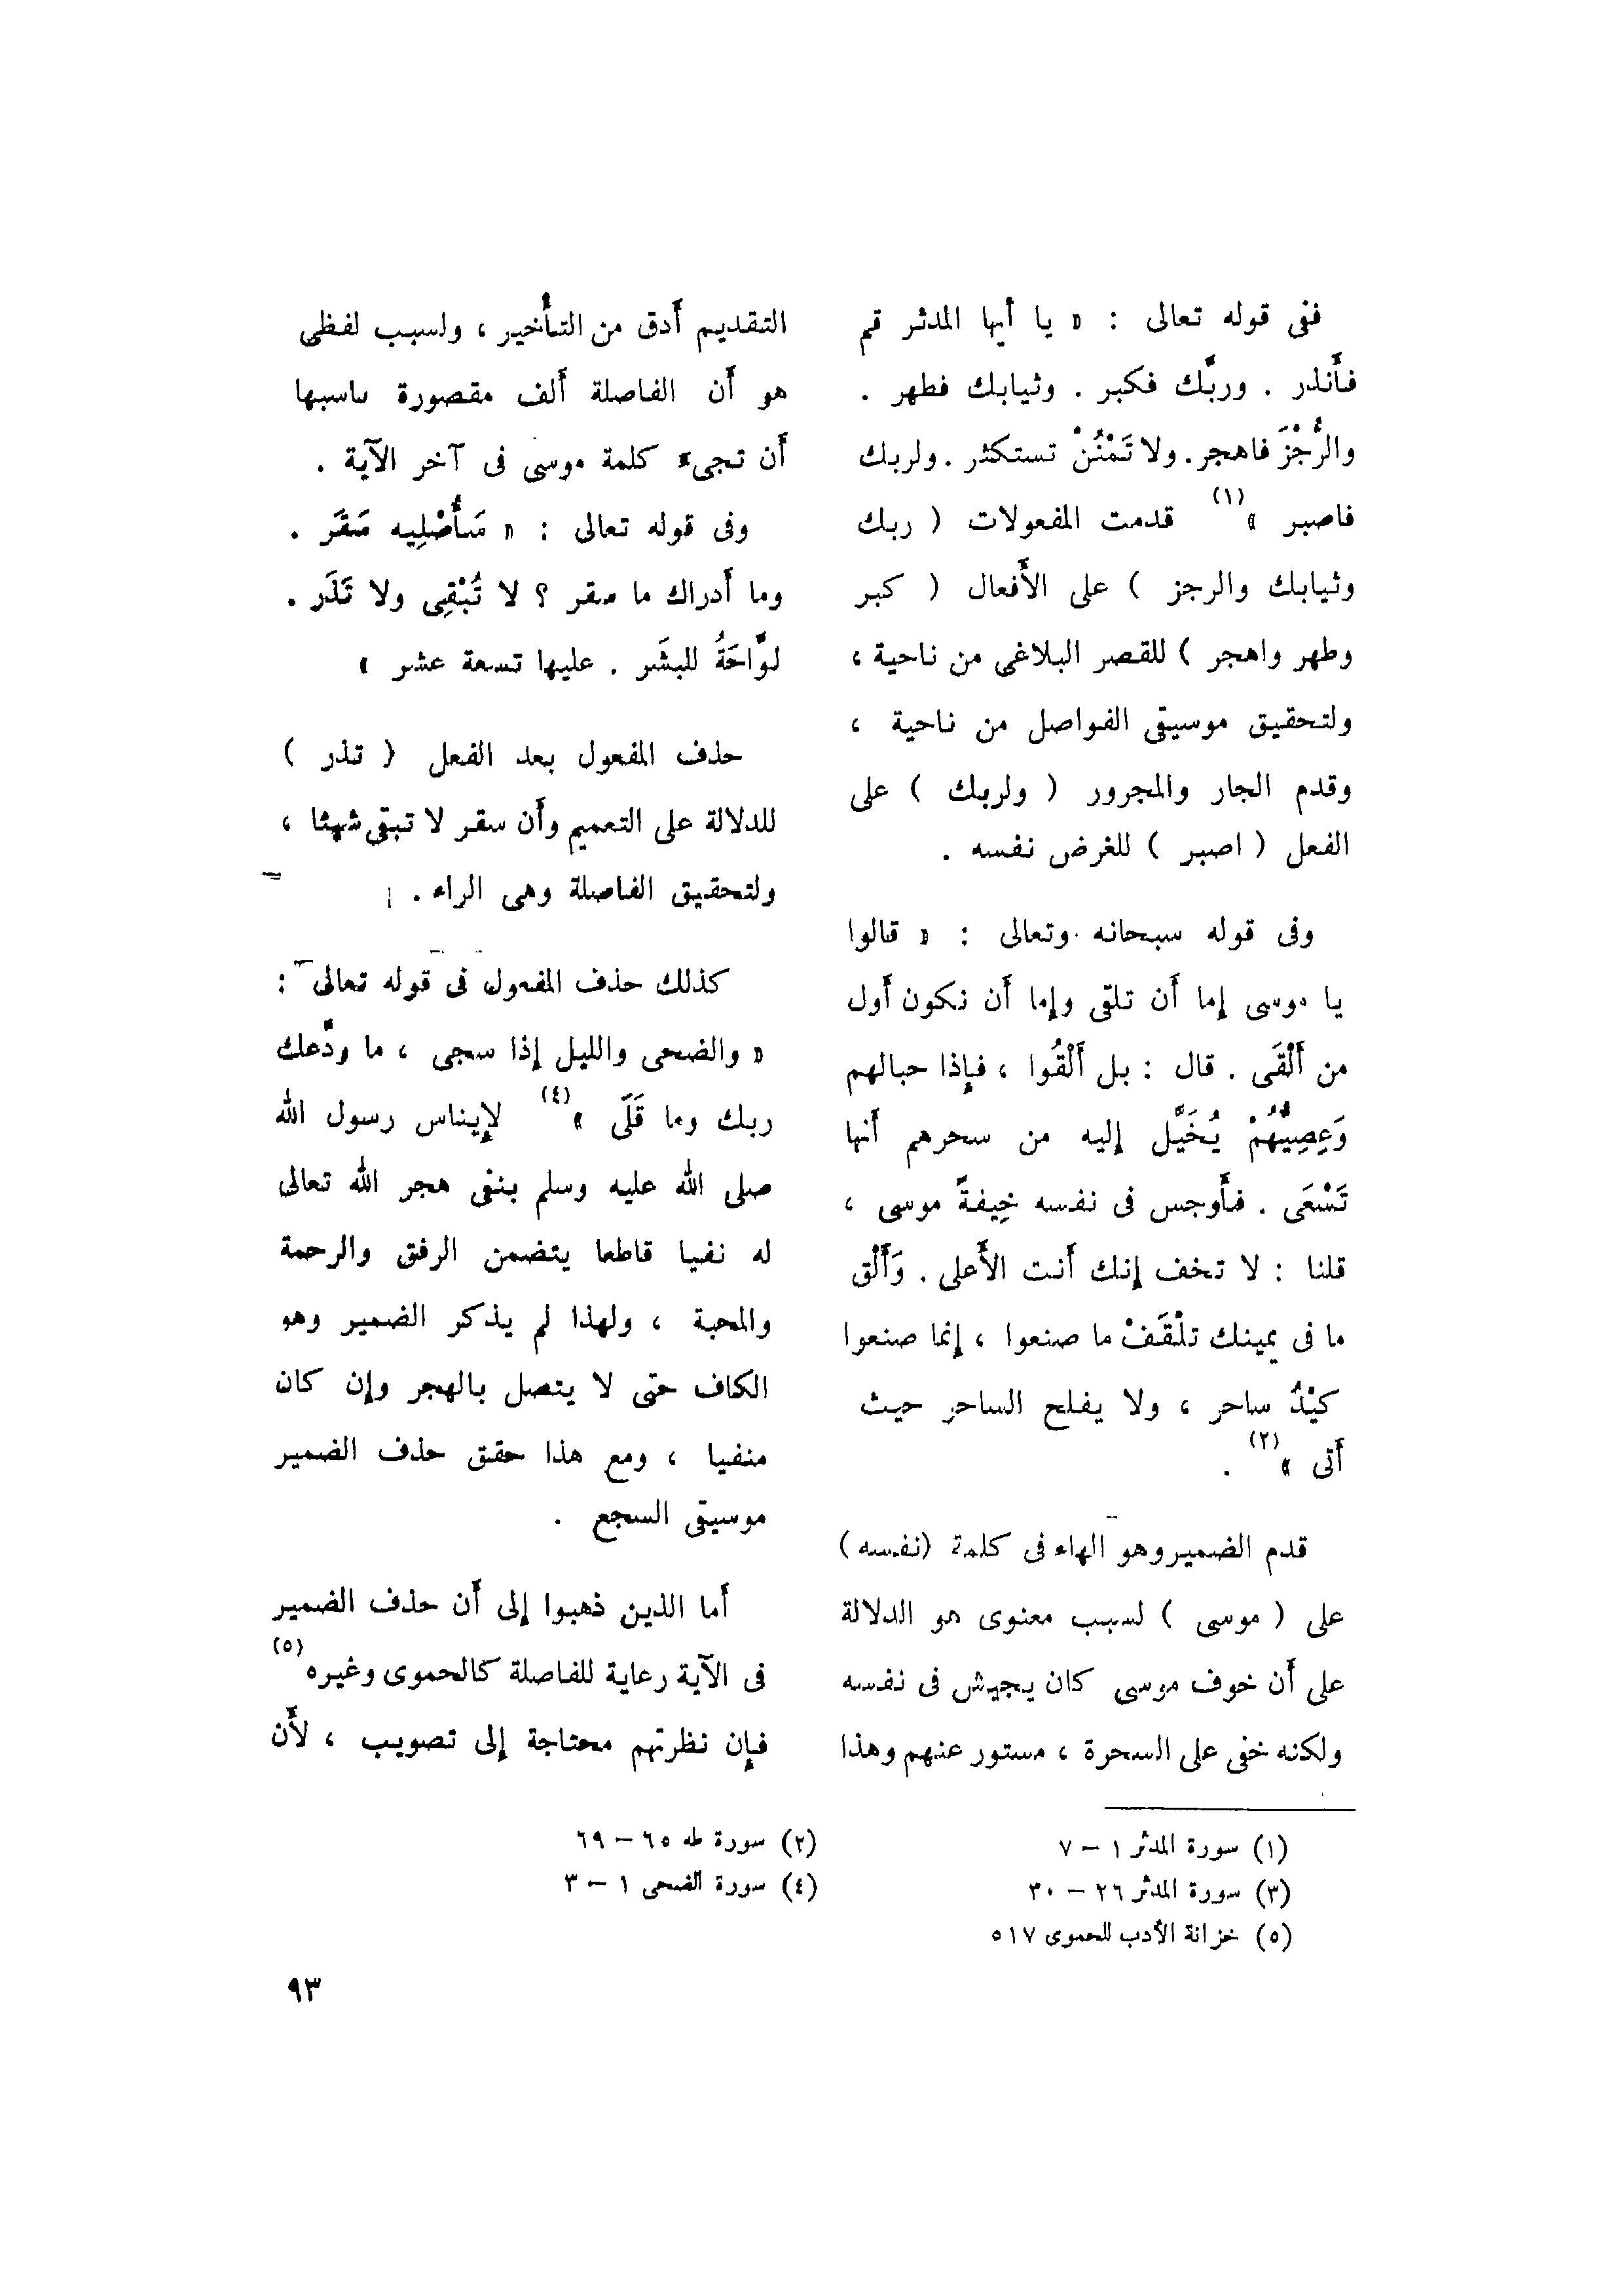 ففى قوله تعالى : « يا أيها المدثر قم
فأنذر . وربَّك فكبر . وثيابك فطهر .
والرُّجْزَ فاهجر. ولا تَمْنُنْ تستكثر . ولربك
فاصبر »(١) قدمت المفعولات ( ربك
وثيابك والرجز ) على الأفعال ( كبر
وطهر واهجر ) للقصر البلاغى من ناحية ،
ولتحقيق موسيقى الفواصل من ناحية ،
وقدم الجار والمجرور ( ولربك ) على
الفعل ( اصبر ) للغرض نفسه .
وفى قوله سبحانه وتعالى : « قالوا
يا موسى إما أن تلقى وإما أن نكون أول
من أَلْقَى . قال : بل أَلْقُوا ، فإذا حبالهم
وَعِصِيُّهُمْ يُخَيَّل إليه من سحرهم أنها
تَسْعَى . فأوجس فى نفسه خِيفةً موسى ،
قلنا : لا تخف إنك أنت الأعلى . وَأَلْق
ما فى يمينك تلْقَفْ ما صنعوا ، إنما صنعوا
كيْدُ ساحر ، ولا يفلح الساحر حيث
أتى »(٢) .
قدم الضمير وهو الهاء فى كلمة (نفسه)
على ( موسى ) لسبب معنوى هو الدلالة
على أن خوف موسى كان يجيش فى نفسه
ولكنه خفى على السحرة ، مستور عنهم وهذا
التقديم أدق من التأخير ، ولسبب لفظى
هو أن الفاصلة ألف مقصورة ناسبها
أن تجىء كلمة موسى فى آخر الآية .
وفى قوله تعالى : « سَأُصْلِيه سَقَر .
وما أدراك ما سقر ؟ لا تُبْقِى ولا تَذَر .
لوَّاحَةُ للبشَر . عليها تسعة عشر »
حذف المفعول بعد الفعل ( تذر )
للدلالة على التعميم وأن سقر لا تبقى شيئا ،
ولتحقيق الفاصلة وهى الراء .
كذلك حذف المفعول فى قوله تعالى :
« والضحى والليل إذا سجى ، ما ودَّعك
ربك وما قَلَى »(٤) لإيناس رسول الله
صلى الله عليه وسلم بنفى هجر الله تعالى
له نفيا قاطعا يتضمن الرفق والرحمة
والمحبة ، ولهذا لم يذكر الضمير وهو
الكاف حتى لا يتصل بالهجر وإن كان
منفيا ، ومع هذا حقق حذف الضمير
موسيقى السجع .
أما الذين ذهبوا إلى أن حذف الضمير
فى الآية رعاية للفاصلة كالحموى وغيره(٥)
فإن نظرتهم محتاجة إلى تصويب ، لأن
(١) سورة المدثر ١ – ٧
(٢) سورة طه ٦٥ – ٦٩
(٣) سورة المدثر ٢٦ – ٣٠
(٤) سورة الضحى ١ – ٣
(٥) خزانة الأدب للحموى ٥١٧
٩٣